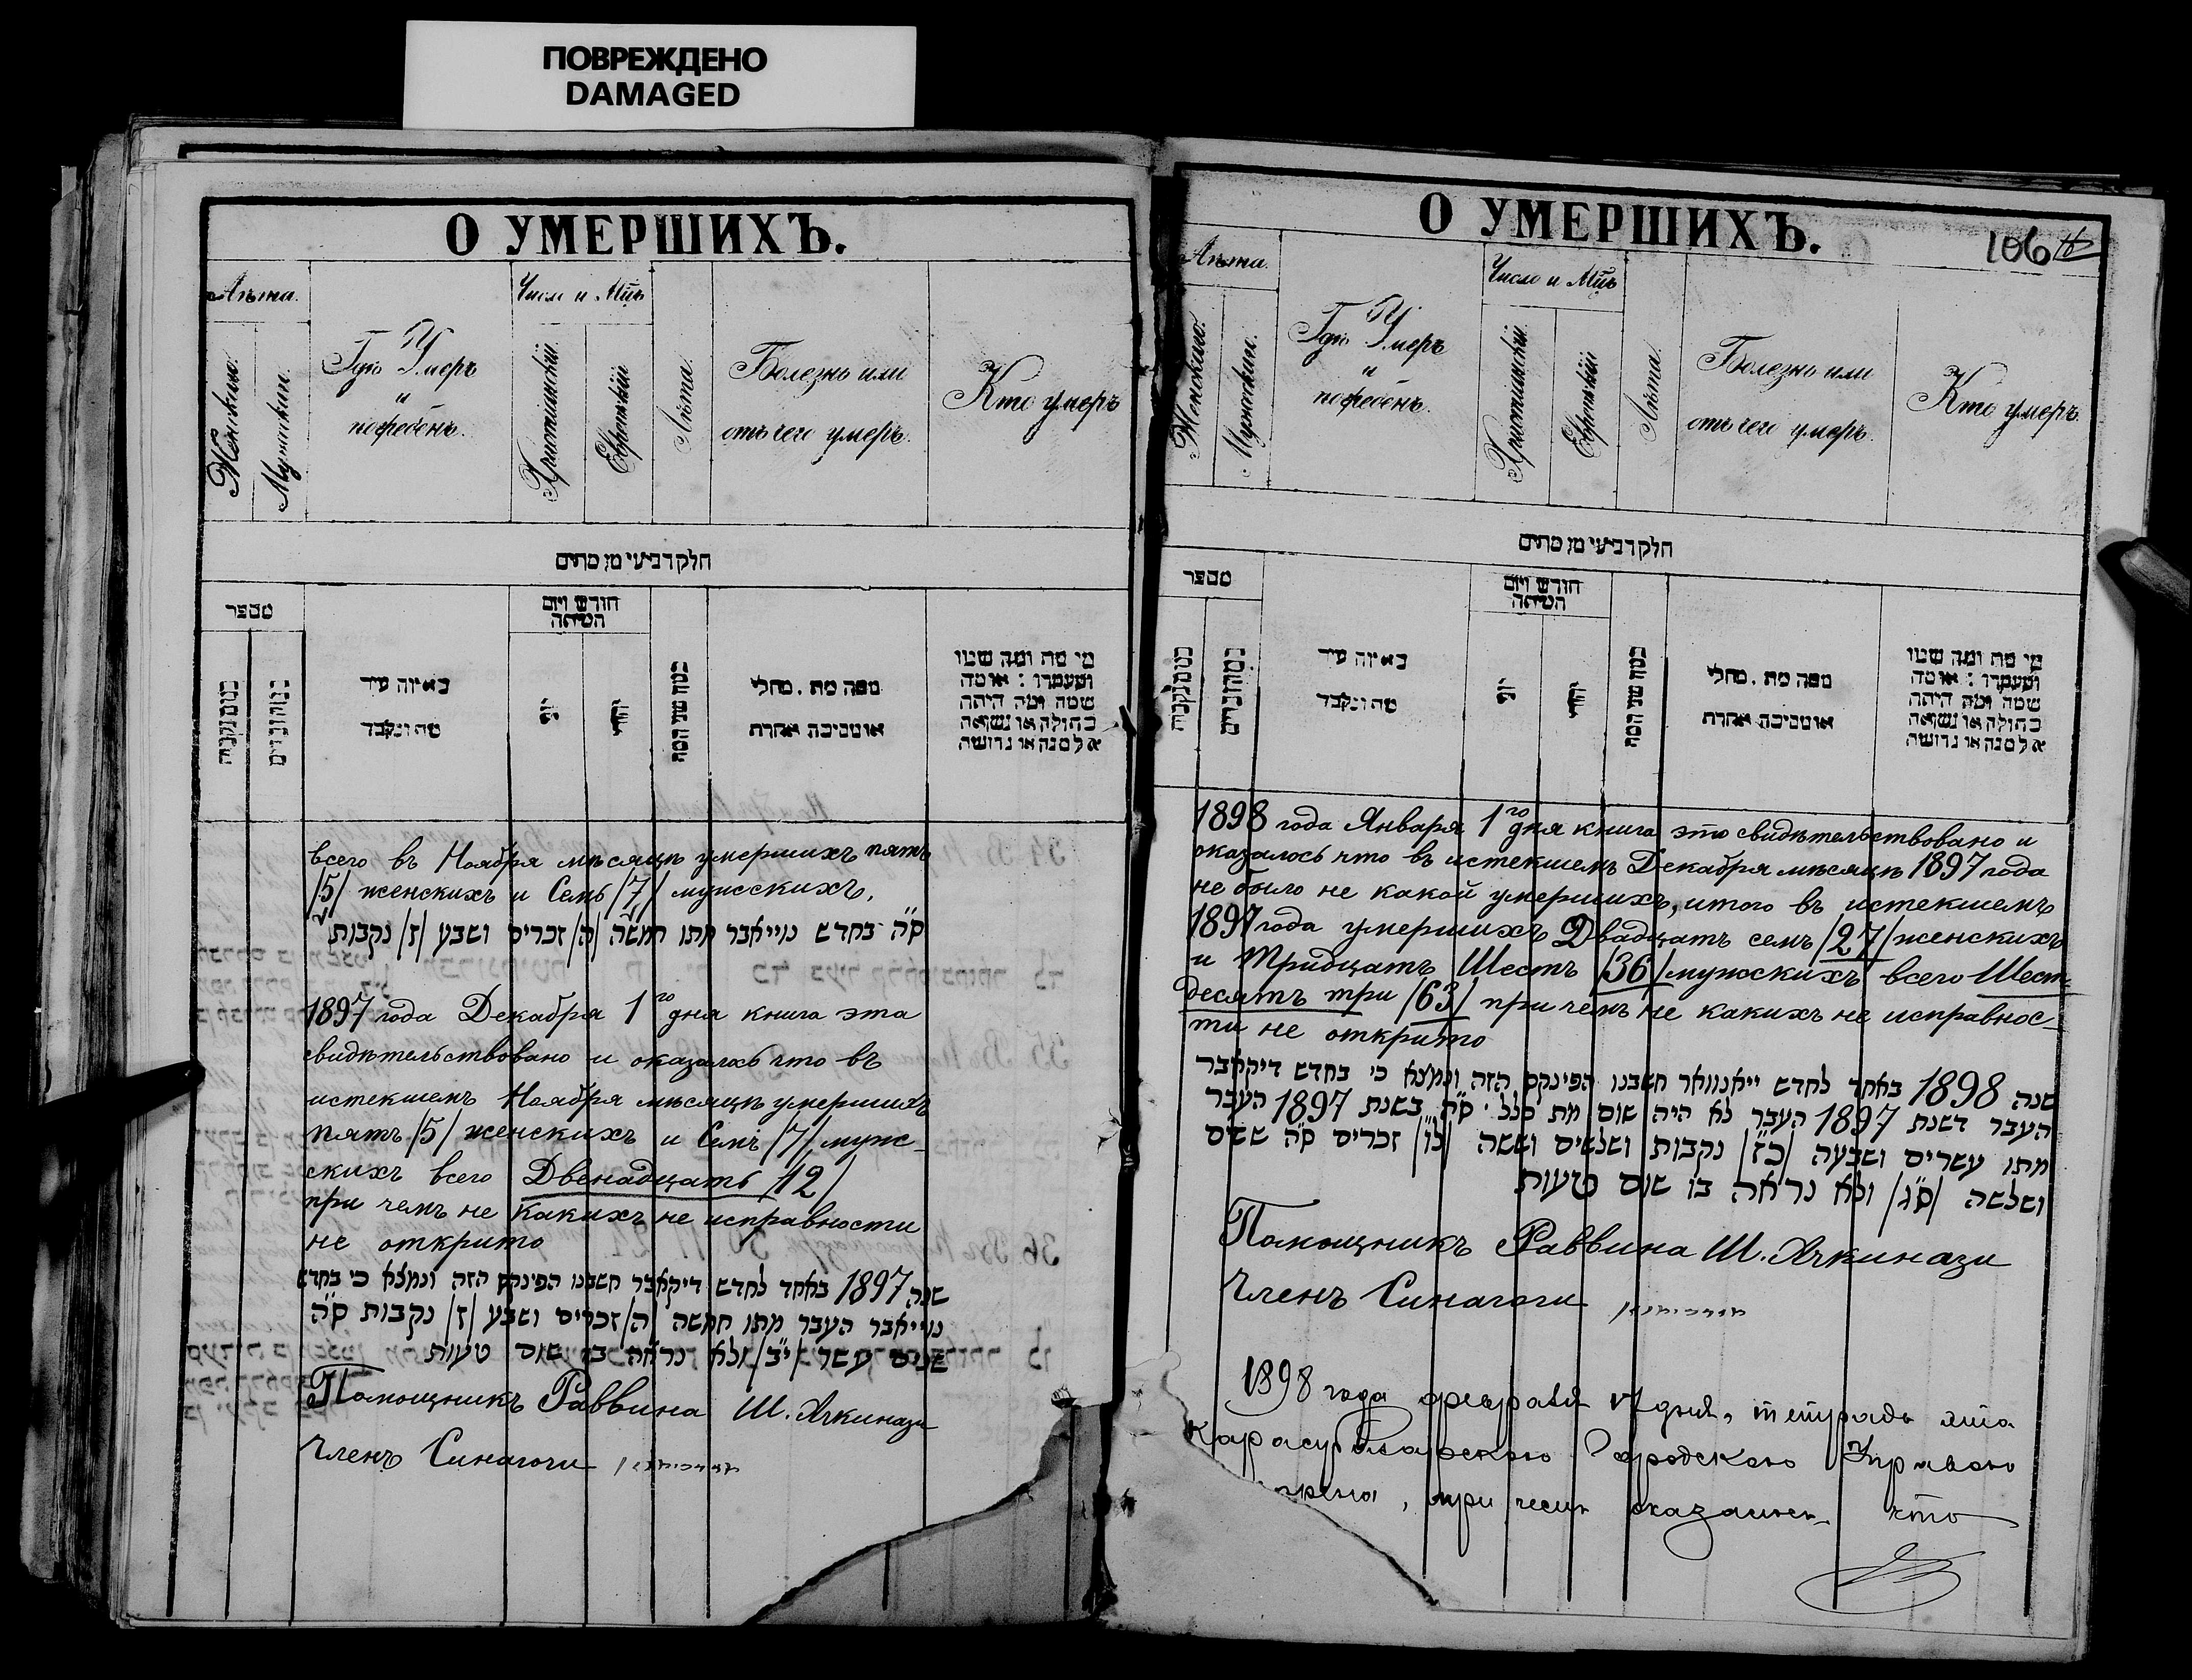 ПОВРЕЖДЕНО
DAMAGED
О УМЕРШИХЪ.
Лѣта.
Женскихъ.
Мужскихъ.
Гдѣ Умеръ
и
погребенъ.
Число и Мцъ
Христіанскій.
Еврейскій
Лѣта.
Болезнь или
отъ чего умеръ.
Кто умеръ
חלק רביעי מן מתים
מספר
חודש ויום
המיתה
באיזה עיר
מת ונקבר
ממה מת . מחלי
או מסיבה אחרת
מי מת ומה שמו
ומעמדו : או מה
שמה ומה היתה
בתולה או נשואה
אלמנה או גרושה
всего въ Ноября мѣсяцѣ умершихъ пять
/5/ женскихъ и Семь /7/ мужскихъ.
ס״ה בחדש נוייאבר מתו חמשה /ה/ זכרים ושבע /ז/ נקבות
1897 года Декабря 1го дня книга эта
свидѣтельствовано и оказалось что въ
истекшемъ Ноября мѣсяцѣ умершихъ
пять /5/ женскихъ и Семь /7/ муж-
скихъ всего Двенадцать /12/
при чемъ не какихъ не исправности
не открито
שנה 1897 באחד לחדש דיקאבר חשבנו הפינקס הזה ונמצא כי בחדש
נוייאבר העבר מתו חמשה /ה/ זכרים ושבע /ז/ נקבות ס״ה
שנים עשר /י״ב/ ולא נראה בו שום טעות
Помощникъ Раввина Ш. Ачкинази
Членъ Синагоги
О УМЕРШИХЪ.
106
Лѣта.
Женскаго.
Мужскихъ.
Гдѣ Умеръ
и
погребенъ.
Число и Мцъ
Христіанскій.
Еврейскій
Лѣта.
Болезнь или
отъ чего умеръ.
Кто умеръ.
חלק רביעי מן מתים
מספר
חודש ויום
המיתה
באיזה עיר
מת ונקבר
ממה מת . מחלי
או מסיבה אחרת
מי מת ומה שמו
ומעמדו : או מה
שמה ומה היתה
בתולה או נשואה
אלמנה או גרושה
1898 года Января 1го дня книга это свидѣтельствовано и
оказалось что въ истекшемъ Декабря мѣсяцѣ 1897 года
не было не какой умершихъ, итого въ истекшемъ
1897 года умершихъ Двадцать семь /27/ женскихъ
и Тридцать Шесть /36/ мужскихъ всего Шест-
десятъ три /63/ при чемъ не какихъ не исправнос-
ти не открито
שנה 1898 באחד לחדש ייאנוואר חשבנו הפינקס הזה ונמצא כי בחדש דיקאבר
העבר דשנת 1897 העבר לא היה שום מת כלל . ס״ה בשנת 1897 העבר
מתו עשרים ושבעה /כ״ז/ נקבות ושלשים וששה /ל״ו/ זכרים ס״ה ששים
ושלשה /ס״ג/ ולא נראה בו שום טעות
Помощникъ Раввина Ш. Ачкинази
Членъ Синагоги
1898 года февраля дня, тетрадь эта
Карасубазарскою Городскою Управою
, при чемъ оказалось что